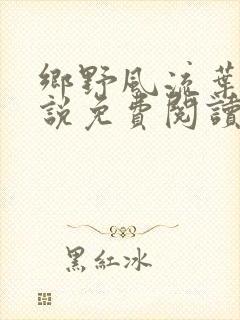 鄉野風流葉
說免費閱讀
黑紅冰